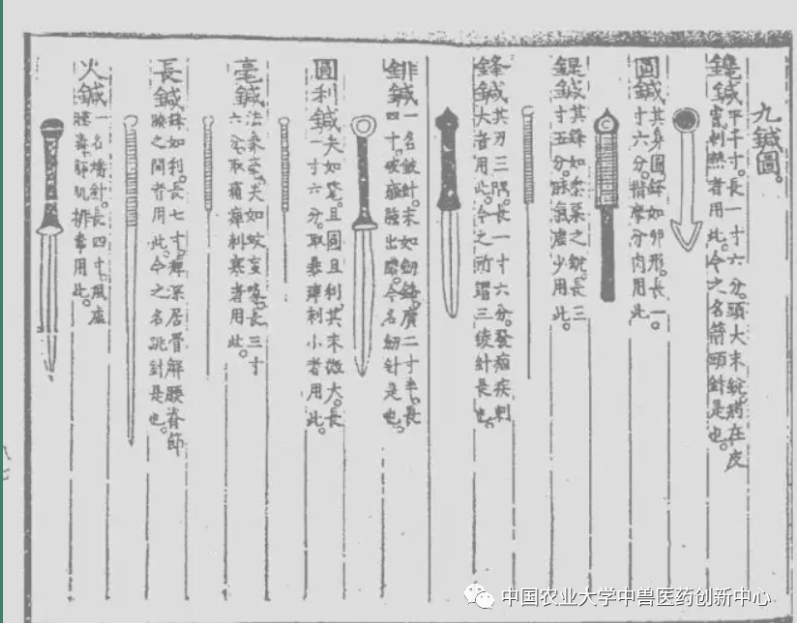 九鍼圖。
鑱鍼
平半寸。長一寸六分。頭大末銳。病在皮
膚。刺熱者用此。今之名箭頭針是也。
圓鍼
其身圓。鋒如卵形。長一
寸六分。揩摩分肉用此。
鍉鍼
其鋒如黍粟之銳。長三
寸五分。脉氣虛少用此。
鋒鍼
其刃三隅。長一寸六分。發痼疾刺
大者用此。今之所謂三稜針是也。
鈹鍼
一名鈹針。末如劒鋒。廣二寸半。長
四寸。破癰腫出膿。今名劒針是也。
圓利鍼
尖如氂。且圓且利。其末微大。長
一寸六分。取暴痺刺小者用此。
毫鍼
法象毫。尖如蚊虻喙。長三寸
六分。取痛痺刺寒者用此。
長鍼
鋒如利。長七寸。痺深居骨解腰脊節
腠之間者用此。今之名跳針是也。
火鍼
一名燔針。長四寸。風虛
腫毒。解肌排毒用此。
中国农业大学中兽医药创新中心